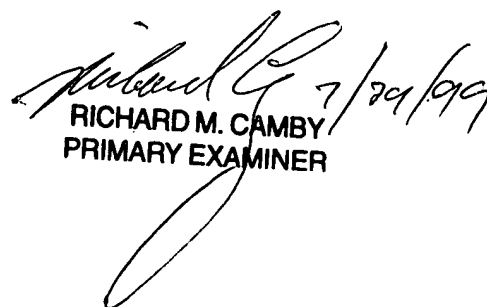 Richard C 7/29/99
RICHARD M. CAMBY
PRIMARY EXAMINER